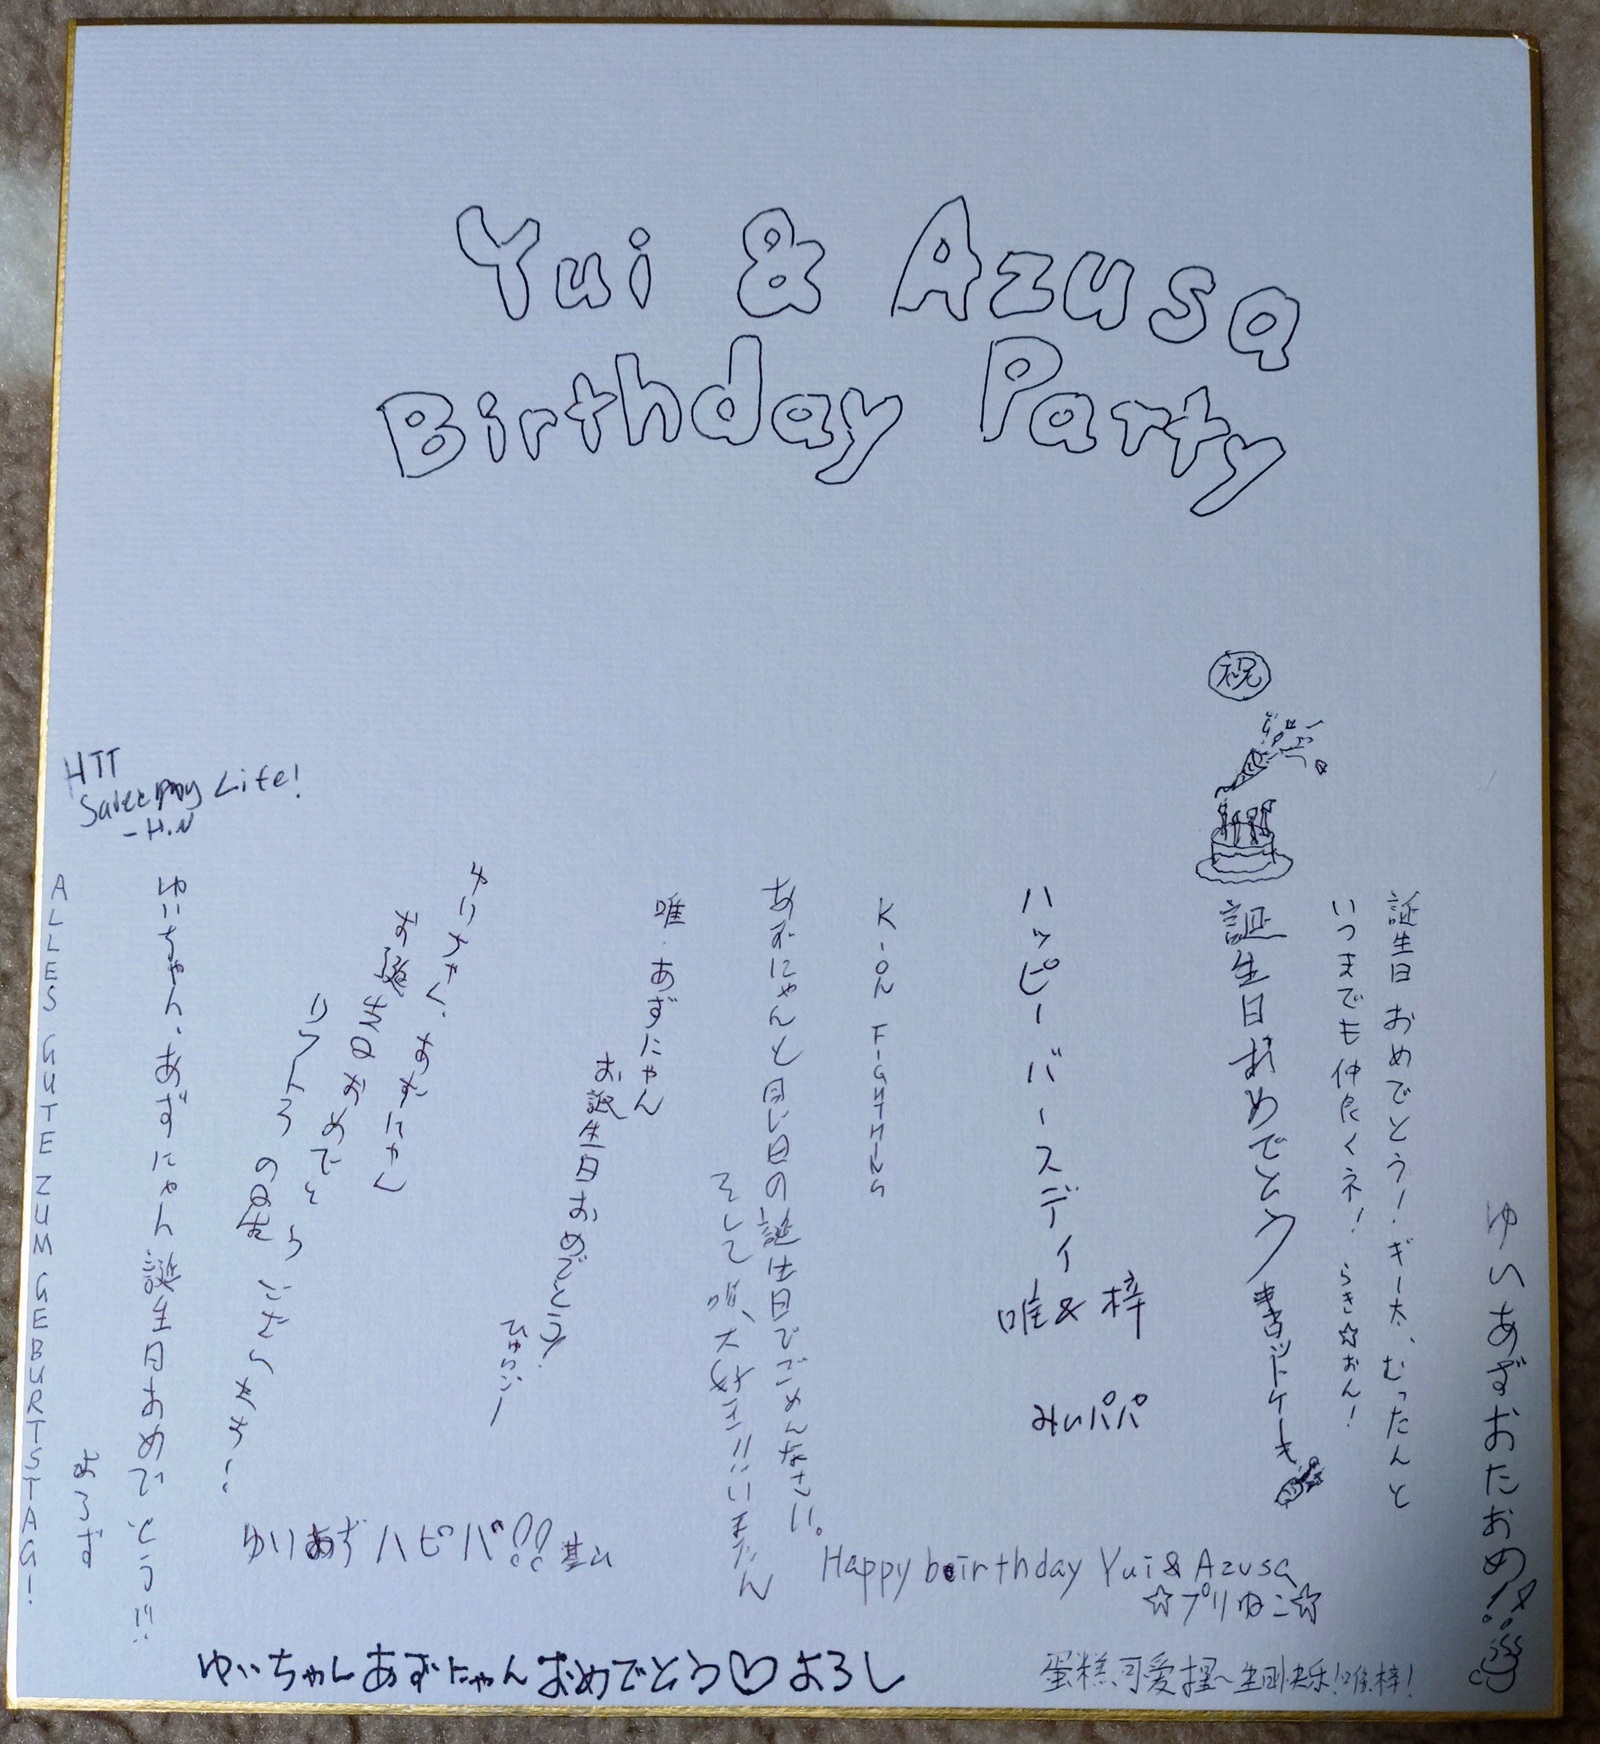 Yui & Azusa
Birthday Party
祝
HTT
Life!
-H.N
ゆいあずおたおめ!!
誕生日おめでとう!ギー太、むったんと
いつまでも仲良くネ!らき☆おん!
誕生日おめでとう
ットケーキ
ハッピーバースデイ
唯&梓
みいパパ
K-ON FIGHTHING
あずにゃんと同じ日の誕生日でごめんなさい。
そして唯、大好き!!
唯・あずにゃん
お誕生日おめでとう!
お誕生日おめでとう
ございます!
ゆいちゃん、あずにゃん誕生日おめでとう!!
よろず
ALLES GUTE ZUM GEBURTSTAG!
ゆいあずハピバ!!
Happy beirthday Yui & Azusa
☆プリねこ☆
ゆいちゃんあずにゃんおめでとう♡よろし
蛋糕可爱~生日快乐!唯,梓!